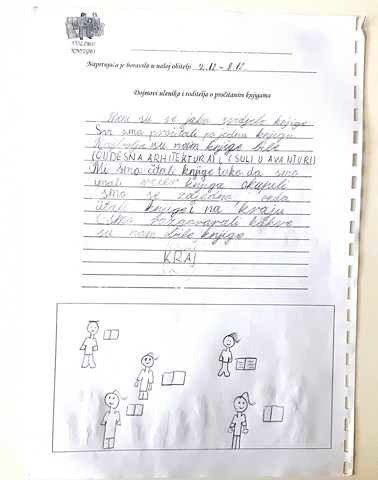 VOLIMO
KNJIGE!
Naprtnjača je boravila u našoj obitelji 2.12 - 8.12.
Dojmovi učenika i roditelja o pročitanim knjigama
Meni su se jako svidjele knjige.
Svi smo pročitali po jednu knjigu.
Najbolje su nam knjige bile
(ČUDESNA ARHITEKTURA) i (SULI U AVANTURI)
Mi smo čitali knjige tako da smo
imali večer knjiga okupili
smo se zajedno onda
čitali knjige i na kraju
smo razgovarali kakve
su nam bile knjige.
KRAJ